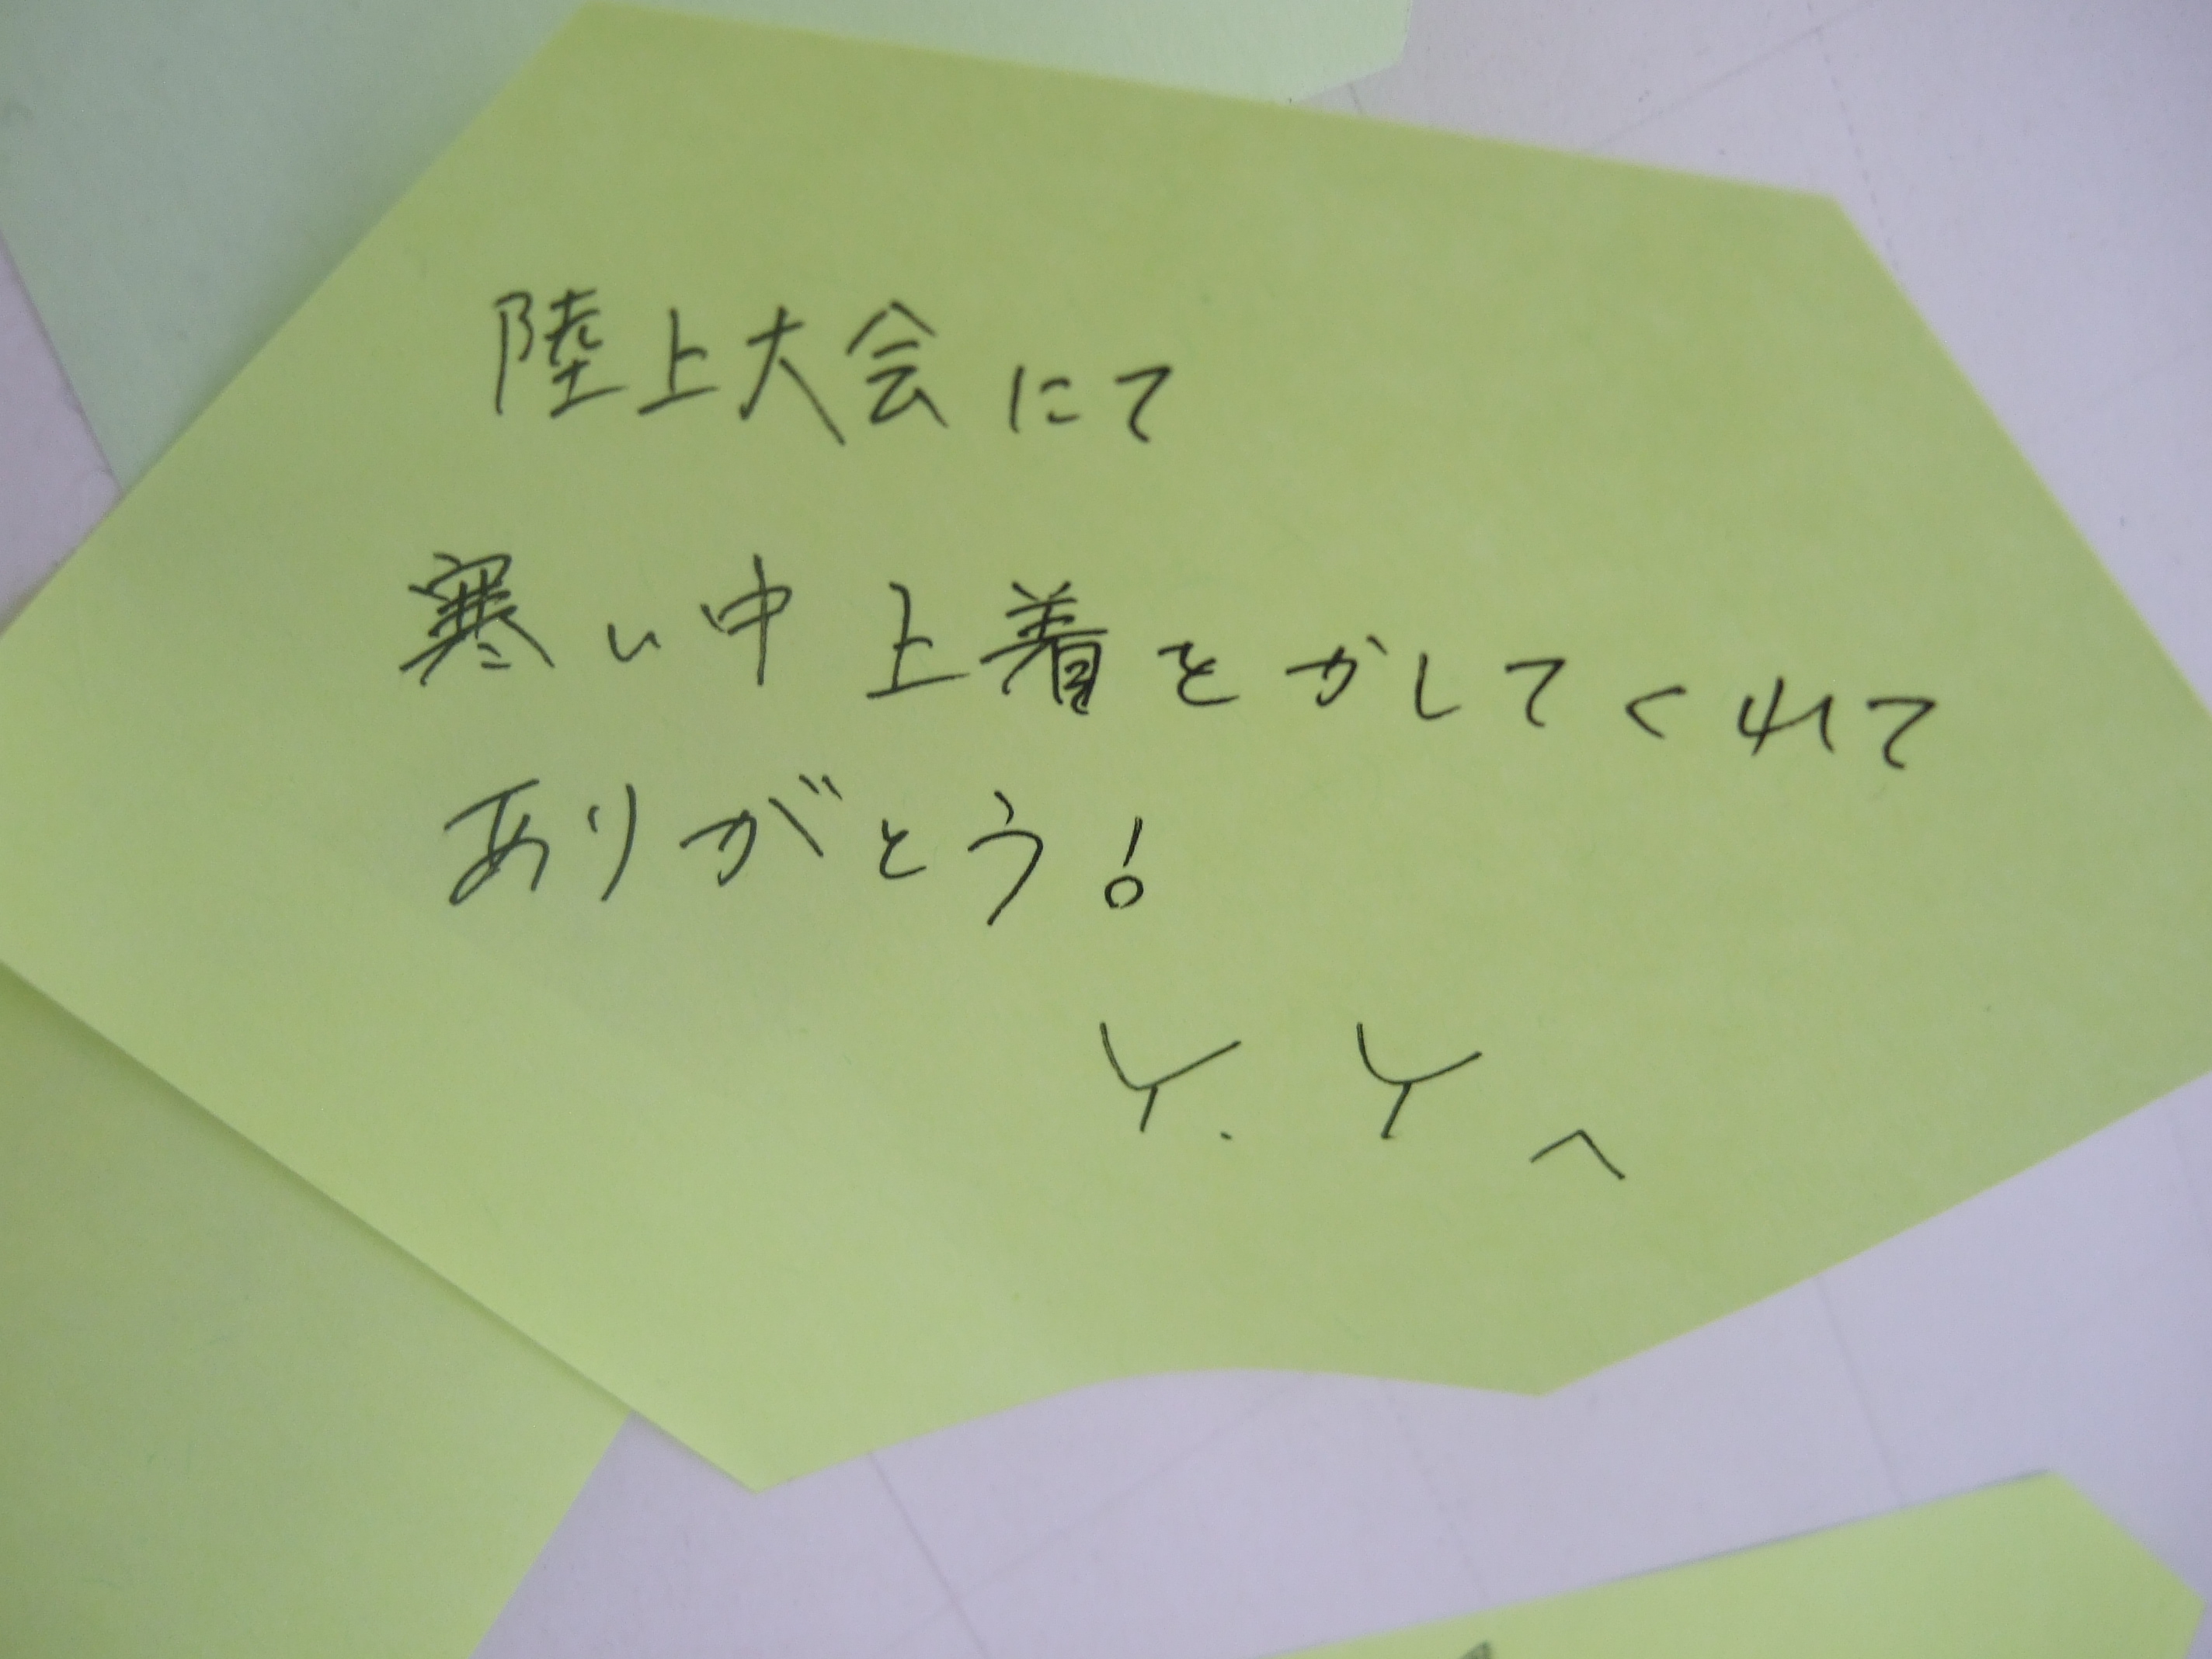 陸上大会にて
寒い中上着をかしてくれて
ありがとう!
Y. Yへ